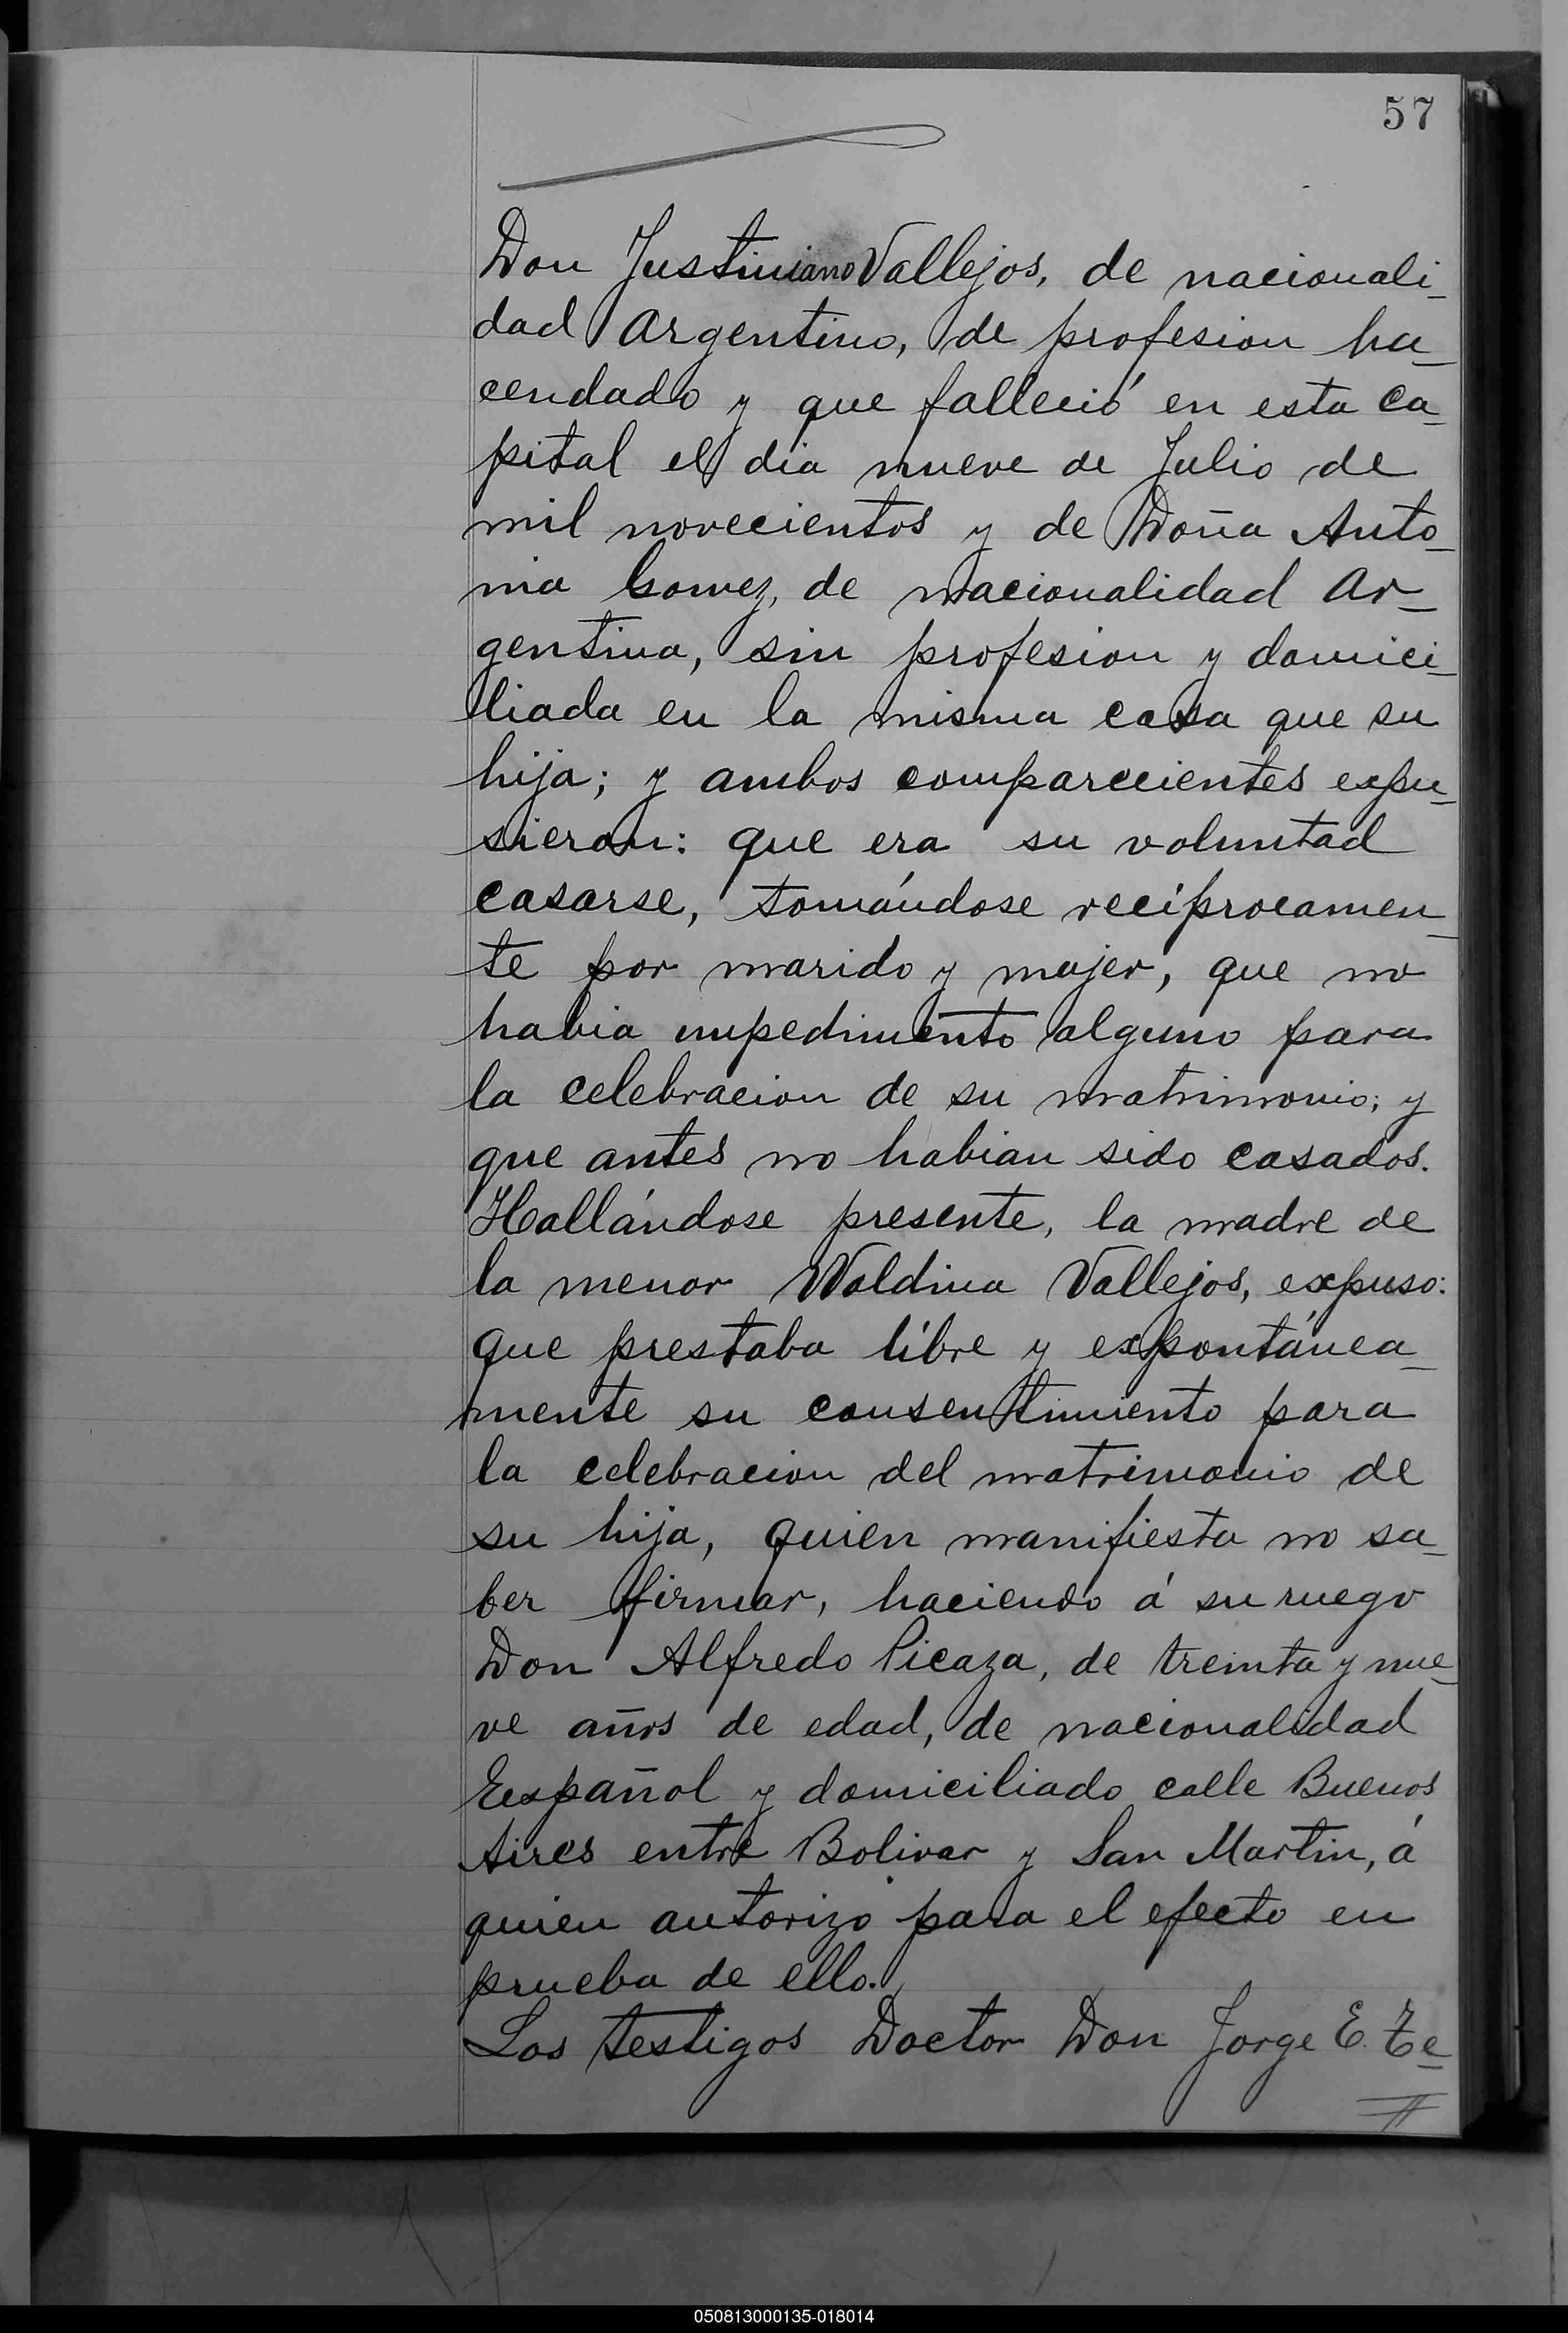 57
Don Justiniano Vallejos, de nacionali-
dad Argentino, de profesion ha-
cendado y que falleció en esta ca-
pital el dia nueve de Julio de
mil novecientos y de Doña Anto-
nia Gomez, de nacionalidad Ar-
gentina, sin profesion y domici-
liada en la misma casa que su
hija; y ambos comparecientes expu-
sieron: que era su voluntad
casarse, tomándose recíprocamen-
te por marido y mujer, que no
habia impedimento alguno para
la celebracion de su matrimonio; y
que antes no habian sido casados.
Hallándose presente, la madre de
la menor Waldina Vallejos, expuso:
que prestaba líbre y expontánea-
mente su consentimiento para
la celebracion del matrimonio de
su hija, quien manifiesta no sa-
ber firmar, haciendo á su ruego
Don Alfredo Picaza, de treinta y nue-
ve años de edad, de nacionalidad
Español y domiciliado calle Buenos
Aires entre Bolivar y San Martin, á
quien autorizo para el efecto en
prueba de ello.
Los testigos Doctor Don Jorge E. Ze-
050813000135-018014